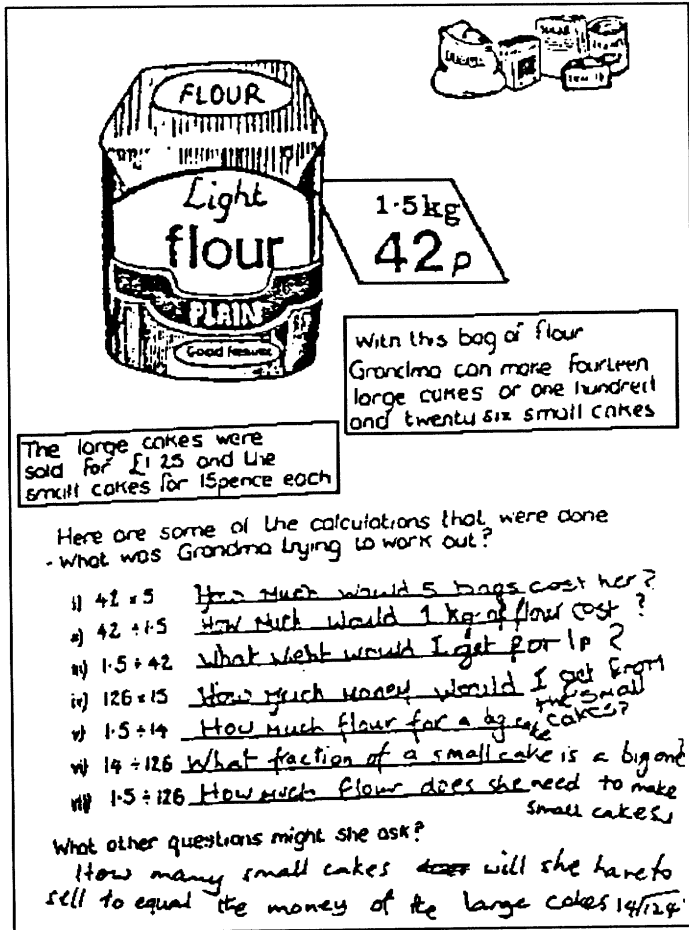 FLOUR
Light
flour
PLAIN
1.5kg
42p
With this bag of flour
Grandma can make fourteen
large cakes or one hundred
and twenty six small cakes
The large cakes were
sold for £1 25 and the
small cakes for 15pence each
Here are some of the calculations that were done
- What was Grandma trying to work out?
i) 42 × 5 How much would 5 bags cost her?
ii) 42 ÷ 1.5 How much would 1 kg of flour cost?
iii) 1.5 ÷ 42 What wieht would I get for 1p?
iv) 126 × 15 How much money would I get from the small cakes?
v) 1.5 ÷ 14 How much flour for a big cake
vi) 14 ÷ 126 What fraction of a small cake is a big one?
vii) 1.5 ÷ 126 How much flour does she need to make small cakes
What other questions might she ask?
How many small cakes will she have to
sell to equal the money of the large cakes 14/124